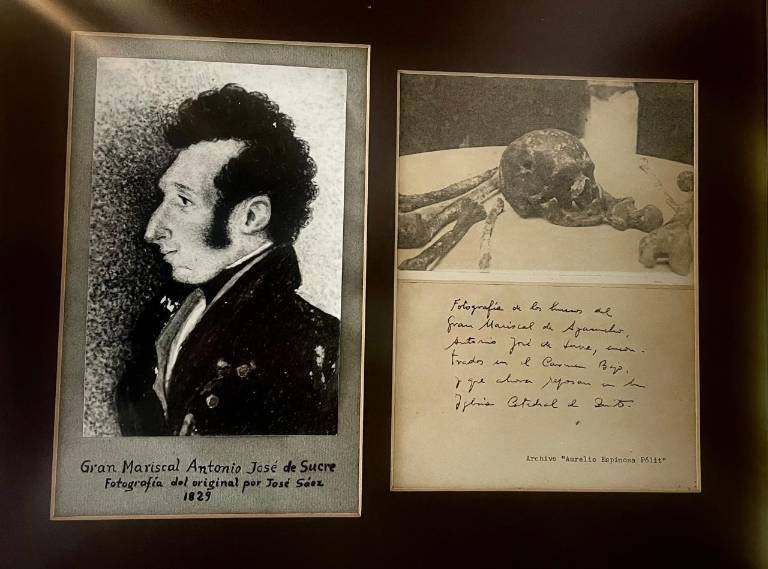 Gran Mariscal Antonio José de Sucre
Fotografía del original por José Sáez
1829
Fotografía de los huesos del
Gran Mariscal de Ayacucho,
Antonio José de Sucre, encon-
trados en el Carmen Bajo,
y que ahora reposan en la
Iglesia Catedral de Quito.
Archivo "Aurelio Espinosa Pólit"